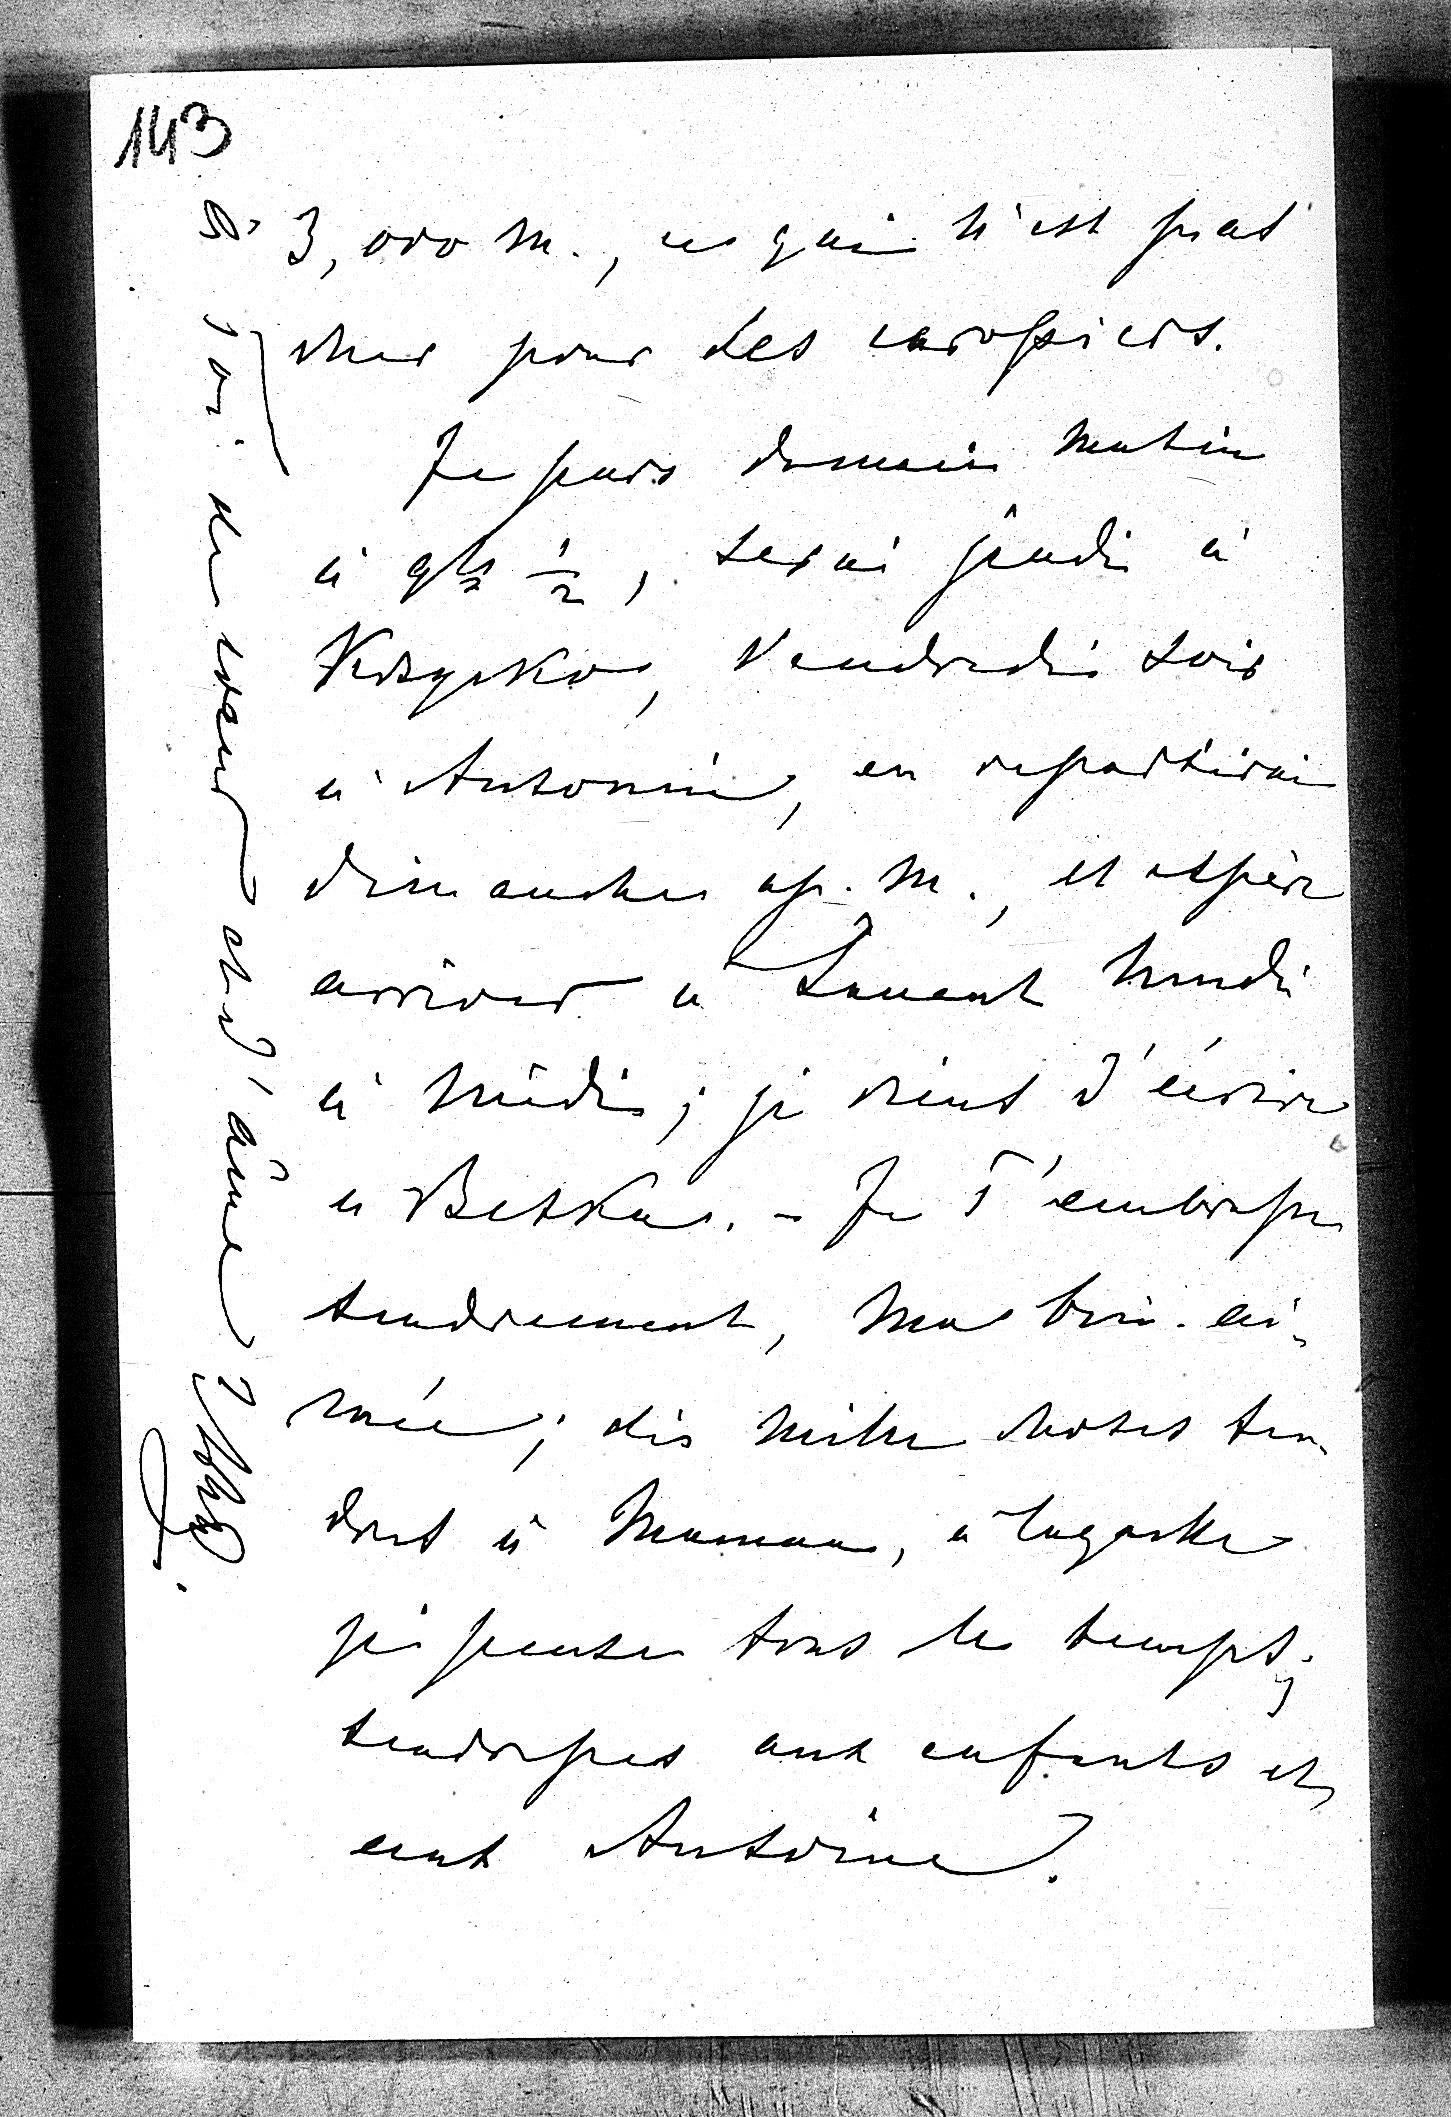 143
3,000 M., ce qui n'est pas
cher pour des carossiers.
Je pars demain matin
à 9h ½, serai jeudi à
vendredi soir
à Antonin, en repartirai
dimanche ap. M., et espère
arriver à Lancut lundi
à midi; je viens d'écrire
à Betka. - Je T'embrasse
tendrement, ma bien-ai-
mée; dis mille choses ten-
dres à Maman, à laquelle
je pense tous le temps;
tendresses aux enfants et
aux Antoine.
à Toi de cœur et d'âme